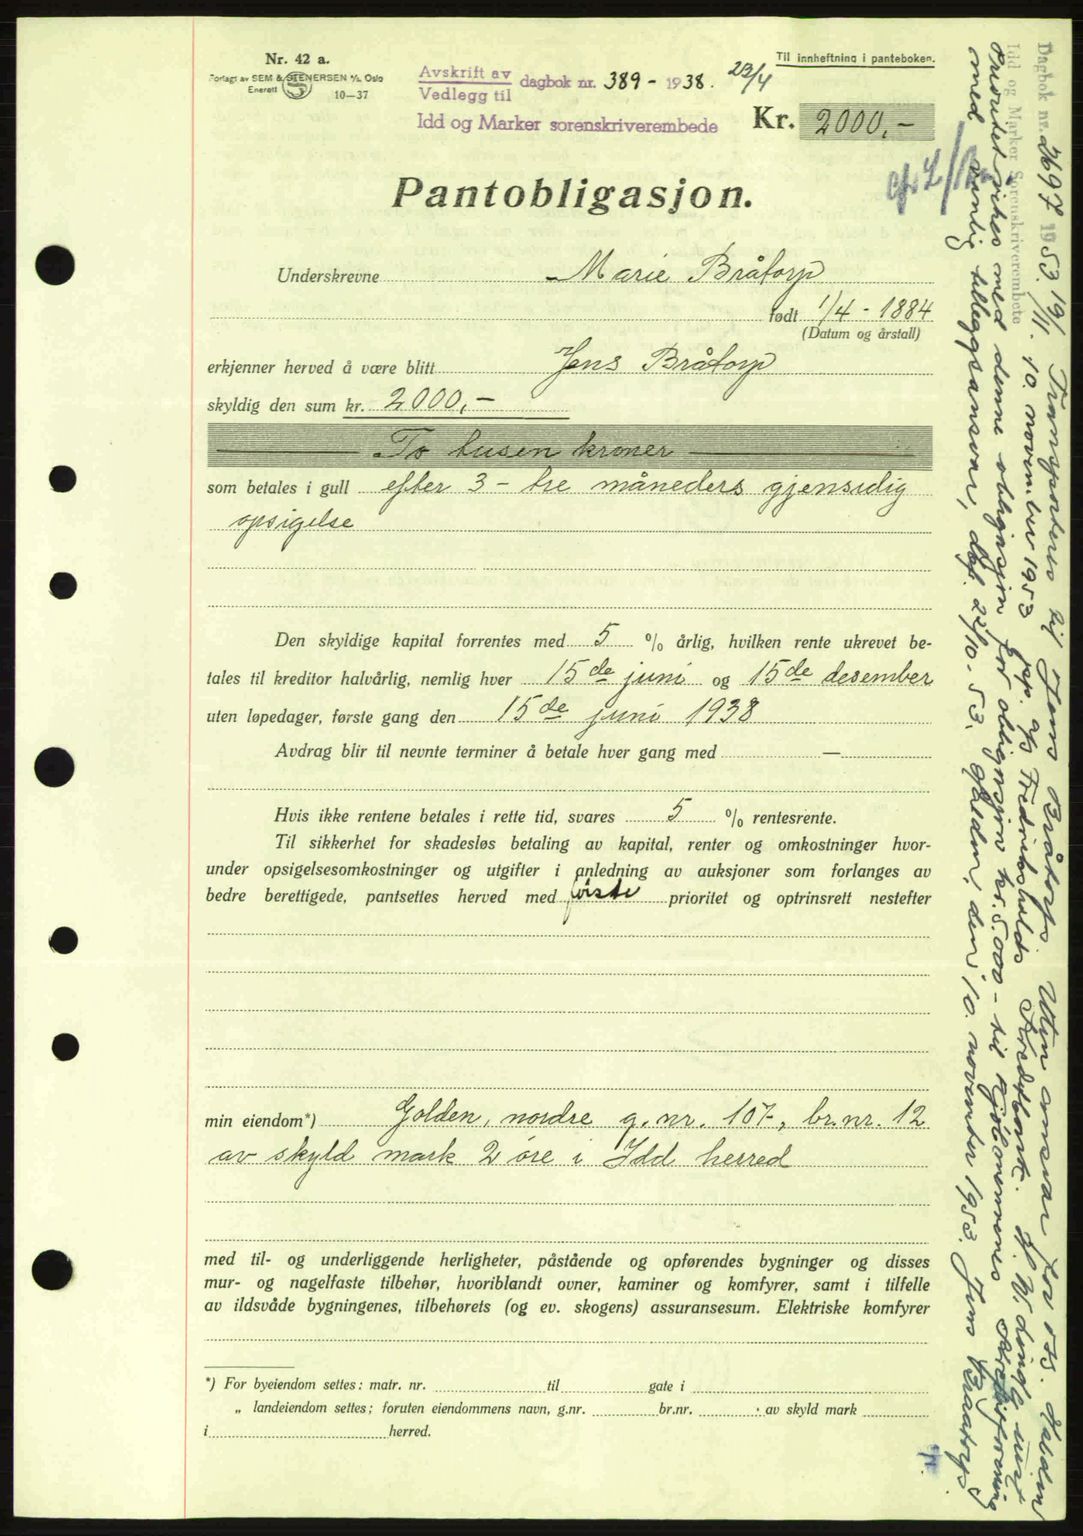 Nr. 42 a.
Forlagt av SEM & STENERSEN A/S, Oslo
Enerett 10—37
Til innheftning i panteboken.
Avskrift av
Vedlegg til
dagbok nr. 389 - 1938. 23/4
Idd og Marker sorenskriverembede
Kr. 2000,-
Pantobligasjon.
Underskrevne Marie Bråtorp
født 1/4 - 1884
(Datum og årstall)
erkjenner herved å være blitt Jens Bråtorp
skyldig den sum kr. 2000,-
To tusen kroner
som betales i gull efter 3 - tre måneders gjensidig
opsigelse
Den skyldige kapital forrentes med 5 % årlig, hvilken rente ukrevet be-
tales til kreditor halvårlig, nemlig hver 15de juni og 15de desember
uten løpedager, første gang den 15de juni 1938
Avdrag blir til nevnte terminer å betale hver gang med —
Hvis ikke rentene betales i rette tid, svares 5 % rentesrente.
Til sikkerhet for skadesløs betaling av kapital, renter og omkostninger hvor-
under opsigelsesomkostninger og utgifter i anledning av auksjoner som forlanges av
bedre berettigede, pantsettes herved med første prioritet og optrinsrett nestefter
min eiendom*) Golden, nordre g. nr. 107, br. nr. 12
av skyld mark 2 øre i Idd herred
med til- og underliggende herligheter, påstående og opførendes bygninger og disses
mur- og nagelfaste tilbehør, hvoriblandt ovner, kaminer og komfyrer, samt i tilfelle
av ildsvåde bygningenes, tilbehørets (og ev. skogens) assuransesum. Elektriske komfyrer
*) For byeiendom settes: matr. nr. til gate i
„ landeiendom settes: foruten eiendommens navn, g.nr. br.nr. av skyld mark
i herred.
Dagbok nr. 2697 1953 19/11. Transporteres til Jens Bråtorp Uten ansvar for oss. Halden
Idd og Marker Sorenskriverembete
10. november 1953 pp. A/S Fredrikshalds
prioritet vikes med denne obligasjon for obligasjon kr. 5.000 - til Kjøbmennenes Kredittforening
med vanlig tilleggsansvar, dat. 21/10. 53. Halden, den 10. november 1953. Jens Braatorp